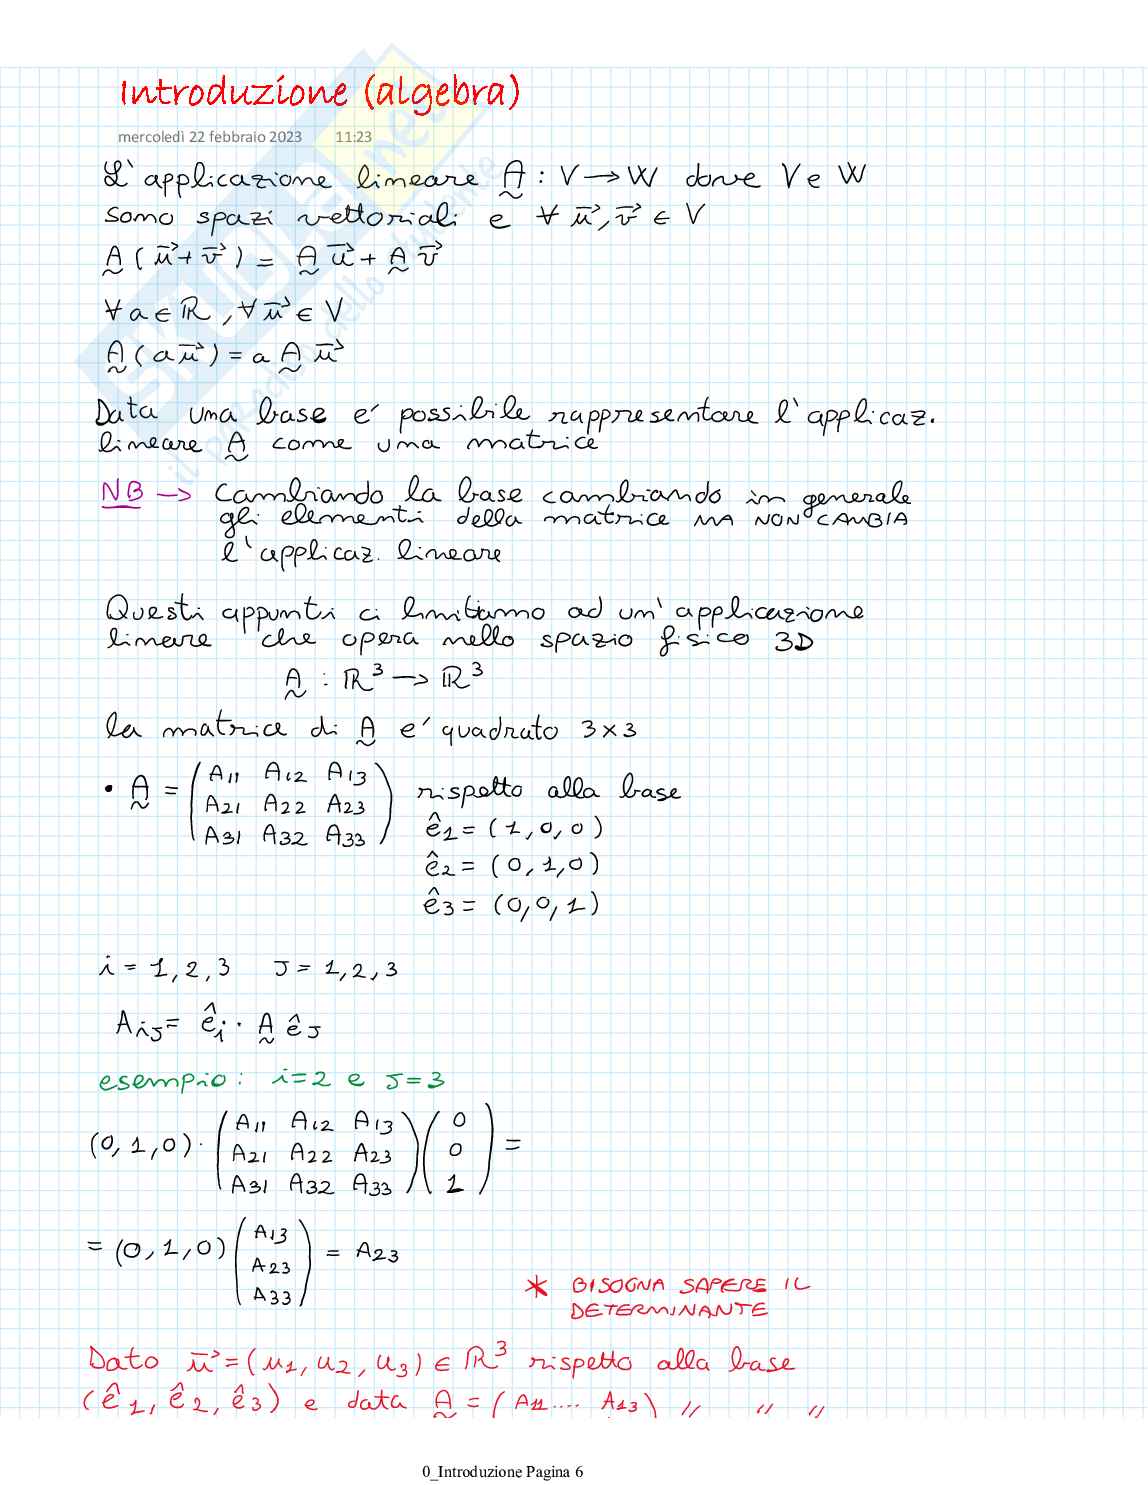 Introduzione (algebra)
mercoledì 22 febbraio 2023 11:23
L'applicazione lineare A̰ : V → W dove V e W
sono spazi vettoriali e ∀ u⃗, v⃗ ∈ V
A̰ (u⃗ + v⃗) = A̰ u⃗ + A̰ v⃗
∀ a ∈ ℝ, ∀ u⃗ ∈ V
A̰ (a u⃗) = a A̰ u⃗
Data una base e' possibile rappresentare l'applicaz.
lineare A̰ come una matrice
NB → Cambiando la base cambiando in generale
gli elementi della matrice MA NON CAMBIA
l'applicaz. lineare
Questi appunti ci limitiamo ad un'applicazione
lineare che opera nello spazio fisico 3D
A̰ : ℝ³ → ℝ³
la matrice di A̰ e' quadrato 3×3
• A̰ = (A11 A12 A13 rispetto alla base
A21 A22 A23
A31 A32 A33)
ê1 = (1, 0, 0)
ê2 = (0, 1, 0)
ê3 = (0, 0, 1)
i = 1, 2, 3 J = 1, 2, 3
AiJ = êi · A̰ êJ
esempio: i=2 e J=3
(0, 1, 0) · (A11 A12 A13) (0
A21 A22 A23 0
A31 A32 A33) 1) =
= (0, 1, 0) (A13
A23
A33) = A23
* BISOGNA SAPERE IL
DETERMINANTE
Dato u⃗ = (u1, u2, u3) ∈ ℝ³ rispetto alla base
(ê1, ê2, ê3) e data A̰ = (A11.... A13) // // //
0_Introduzione Pagina 6